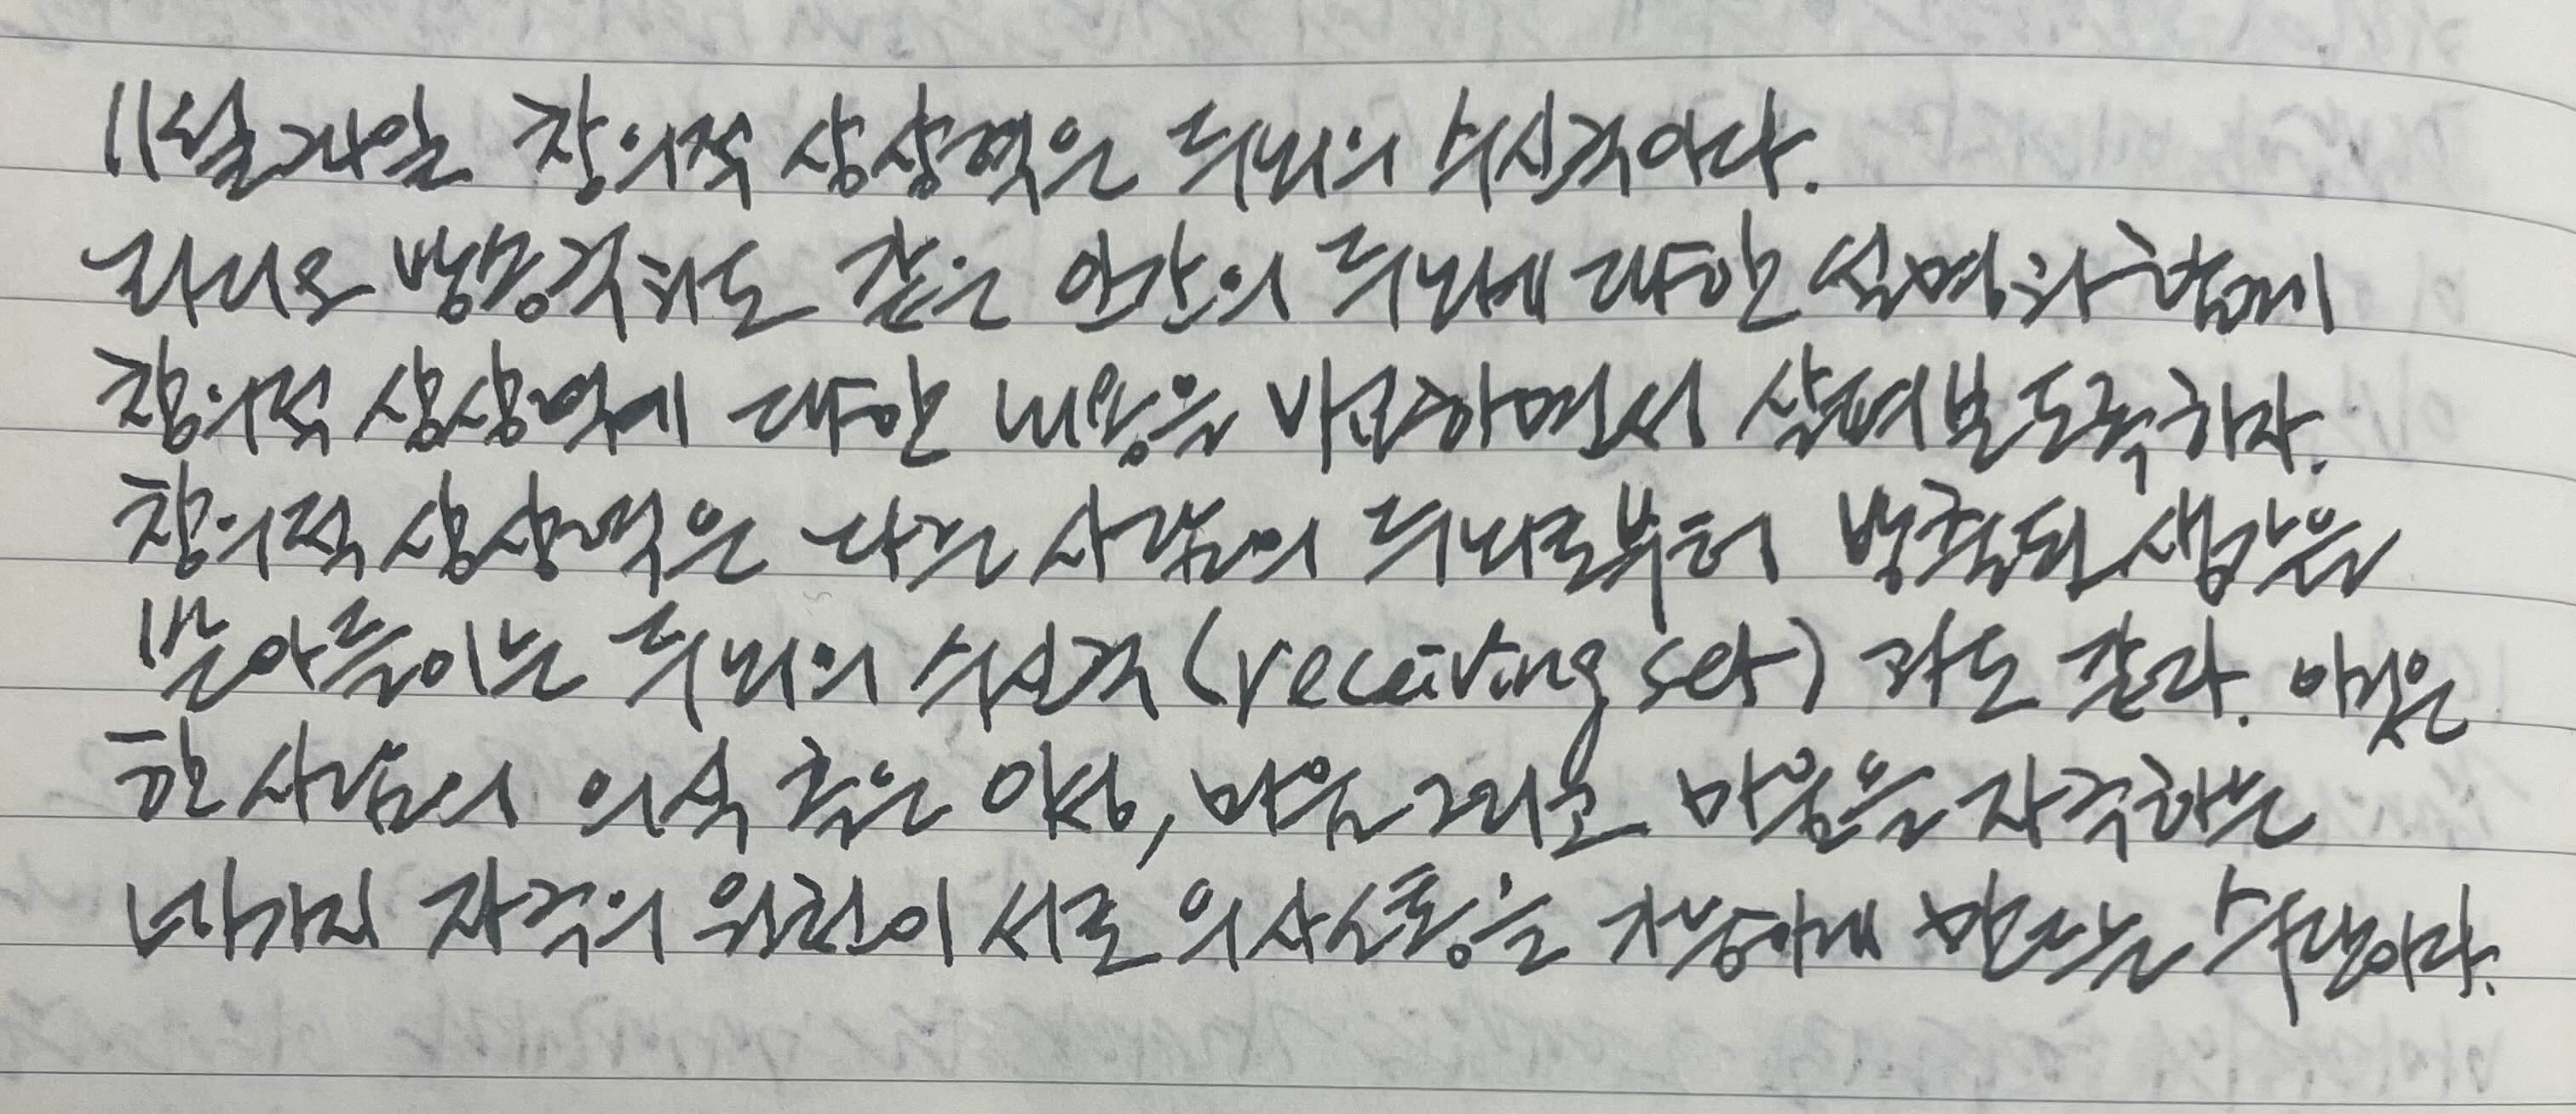 11월24일 창의적 상상력은 두뇌의 수신국이다.
라디오 방송국과도 같은 인간의 두뇌에 대한 설명과 함께
창의적 상상력에 대한 내용을 비교하면서 살펴보도록하자.
창의적 상상력은 다른 사람의 두뇌로부터 방출된 생각을
받아들이는 두뇌의 수신국 (receiving set) 과도 같다. 이것은
한 사람의 의식 혹은 이성, 마음 그리고 마음을 자극하는
네가지 자극의 원천이 서로 의사소통을 가능하게 만드는 수단이다.